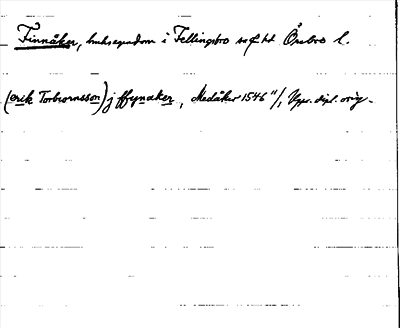 Finnåker, bruksegendom i Fellingsbro sn Örebro l.
(erik Torbiornsson) j ffynaker, Medåker 1546 11/1 Upps. dipl. orig.